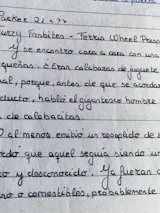 Furry Frosbites - Ferris Wheel Press
Y se encontró cara a cara con una
pequeñas. O eran calabazas de juguete
ual, porque, antes de que se acordas
ducto, habló el gigantesco hombre
de calabacitas.
O al menos envió un resoplido de s
rdó que aquel seguía siendo un
to y desconocido. Ya fueran c
so o comestibles, probablemente